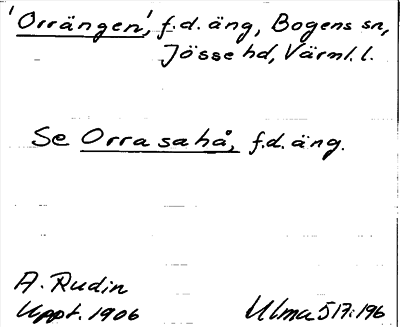 'Orrängen', f.d. äng, Bogens sn,
Jösse hd, Värml. l.
Se Orrasahå, f.d. äng.
A. Rudin
Uppt. 1906
Ulma 517:196